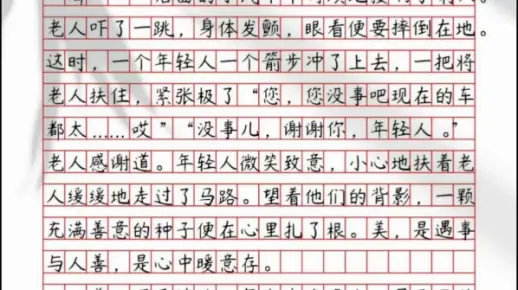 老人吓了一跳，身体发颤，眼看便要摔倒在地。
这时，一个年轻人一个箭步冲了上去，一把将
老人扶住，紧张极了“您，您没事吧现在的车
都太……哎”“没事儿，谢谢你，年轻人。”
老人感谢道。年轻人微笑致意，小心地扶着老
人缓缓地走过了马路。望着他们的背影，一颗
充满善意的种子便在心里扎了根。美，是遇事
与人善，是心中暖意存。